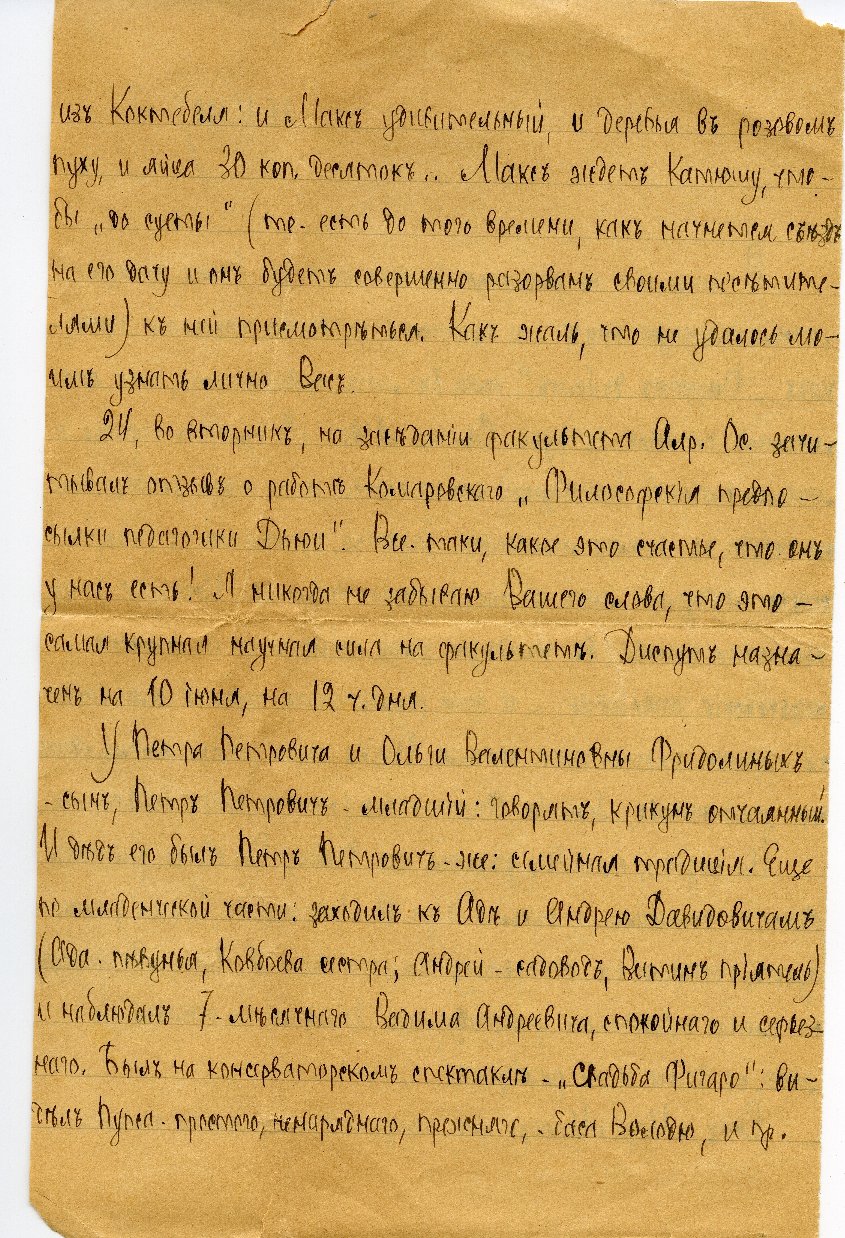 изъ Коктебеля: и Максъ удивительный, и деревья въ розовомъ
пуху, и яйца 30 коп. десятокъ.. Максъ ждетъ Катюшу, что-
бы „до суеты" (то-есть до того времени, какъ начнется съѣздъ
на его дачу и онъ будетъ совершенно разорванъ своими посѣтите-
лями) къ ней присмотрѣться. Какъ жаль, что не удалось мо-
имъ узнать лично Васъ.
24, во вторникъ, на засѣданіи факультета Алр. Ос. зачи-
тывалъ отзывъ о работѣ Комаровскаго „Философскія предпо-
сылки педагогики Дьюи". Все-таки, какое это счастье, что онъ
у насъ есть! Я никогда не забываю Вашего слова, что это -
самая крупная научная сила на факультетѣ. Диспутъ назна-
ченъ на 10 іюня, на 12 ч. дня.
У Петра Петровича и Ольги Валентиновны Фридолиныхъ -
- сынъ, Петръ Петровичъ - младшій: говорятъ, крикунъ отчаянный.
И дѣдъ его былъ Петръ Петровичъ-же: семейная традиція. Еще
по младенческой части: заходилъ къ Адѣ и Андрею Давидовичамъ
(Ада - пѣвунья, сестра; Андрей - садоводъ, Витинъ пріятель)
и наблюдалъ 7-мѣсячнаго Вадима Андреевича, спокойнаго и серьез-
наго. Былъ на консерваторскомъ спектаклѣ - „Свадьба Фигаро": ви-
дѣлъ Пупса - простого, ненаряднаго, прежняго, - баса Володю, и пр.